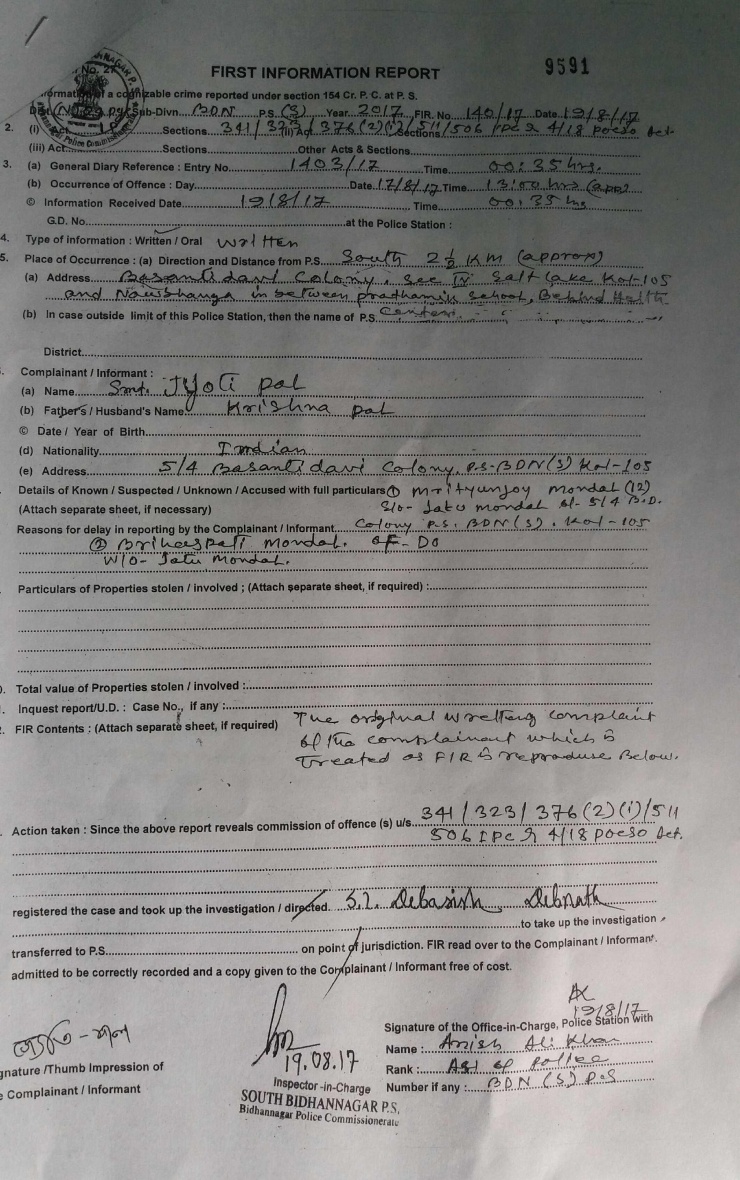 No. 27
FIRST INFORMATION REPORT
9591
Information of a cognizable crime reported under section 154 Cr. P. C. at P. S.
Sub-Divn. BDN P.S. (S) Year 2017 FIR. No 140/17 Date 19/8/17
2. (i) Act Sections 341/323/ (ii) Act 376(2)(i) Sections /511/506 IPC & 4/18 POCSO Act.
(iii) Act Sections Other Acts & Sections
3. (a) General Diary Reference : Entry No. 1403/17 Time 00:35 hrs.
(b) Occurrence of Offence : Day Date 17/8/17 Time 13:00 hrs (app)
© Information Received Date 19/8/17 Time 00:35 hrs
G.D. No. at the Police Station :
4. Type of information : Written / Oral Written
5. Place of Occurrence : (a) Direction and Distance from P.S. South 2 ½ KM (approx)
(a) Address Basanti davi Colony, sec IV Salt Lake Kol-105
and Nawbhanga in between prathamik school, Behind Health
(b) In case outside limit of this Police Station, then the name of P.S. Center.
District
Complainant / Informant :
(a) Name Smt. Jyoti pal
(b) Father's / Husband's Name Krishna pal
© Date / Year of Birth
(d) Nationality Indian
(e) Address 5/4 Basanti davi Colony, P.S-BDN(S) Kol-105
Details of Known / Suspected / Unknown / Accused with full particulars ① Mrityunjoy Mondal (12)
(Attach separate sheet, if necessary) S/o- Jatu Mondal of- 5/4 B.D.
Reasons for delay in reporting by the Complainant / Informant Colony P.S. BDN(S). Kol-105
② Brihaspati Mondal. OF- DO
W/o- Jatu Mondal.
Particulars of Properties stolen / involved ; (Attach separate sheet, if required) :
Total value of Properties stolen / involved :
Inquest report/U.D. : Case No., if any :
FIR Contents : (Attach separate sheet, if required) The original writting complaint
of the complainant which is
treated as FIR is reproduse Below.
Action taken : Since the above report reveals commission of offence (s) u/s 341/323/376(2)(i)/511
506 IPC & 4/18 POCSO Act.
registered the case and took up the investigation / directed. S.I. Debasish Debnath
to take up the investigation
transferred to P.S. on point of jurisdiction. FIR read over to the Complainant / Informant.
admitted to be correctly recorded and a copy given to the Complainant / Informant free of cost.
19/8/17
Signature of the Office-in-Charge, Police Station with
Name : Anish Ali Khan
Rank : ASI of police
Number if any : BDN (S) P.S
gnature /Thumb Impression of
Complainant / Informant
19.08.17
Inspector -in-Charge
SOUTH BIDHANNAGAR P.S.
Bidhannagar Police Commissionerate